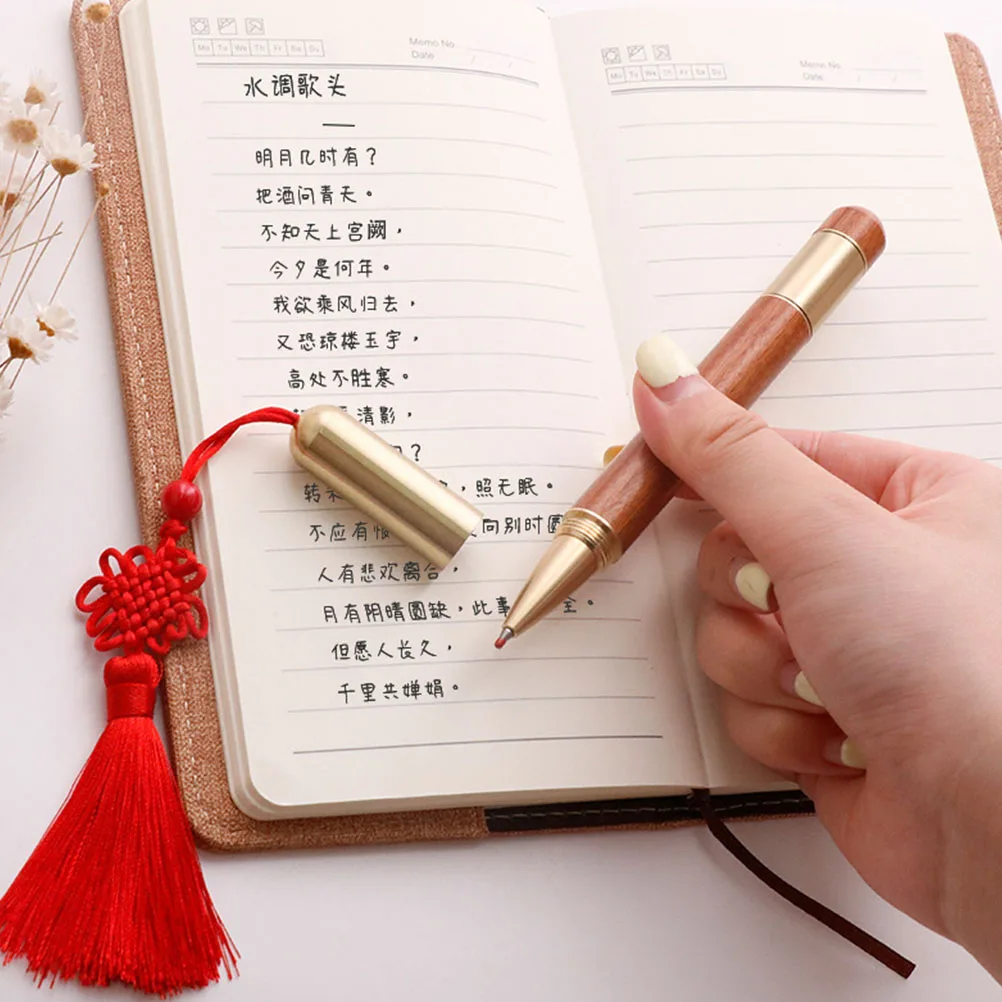 Mo Tu We Th Fr Sa Su
Memo No.
Date / /
水调歌头
一
明月几时有？
把酒问青天。
不知天上宫阙，
今夕是何年。
我欲乘风归去，
又恐琼楼玉宇，
高处不胜寒。
清影，
？
转 照无眠。
不应有 向别时圆
人有悲欢离合
月有阴晴圆缺，此事 全。
但愿人长久，
千里共婵娟。
Mo Tu We Th Fr Sa Su
Memo No.
Date / /